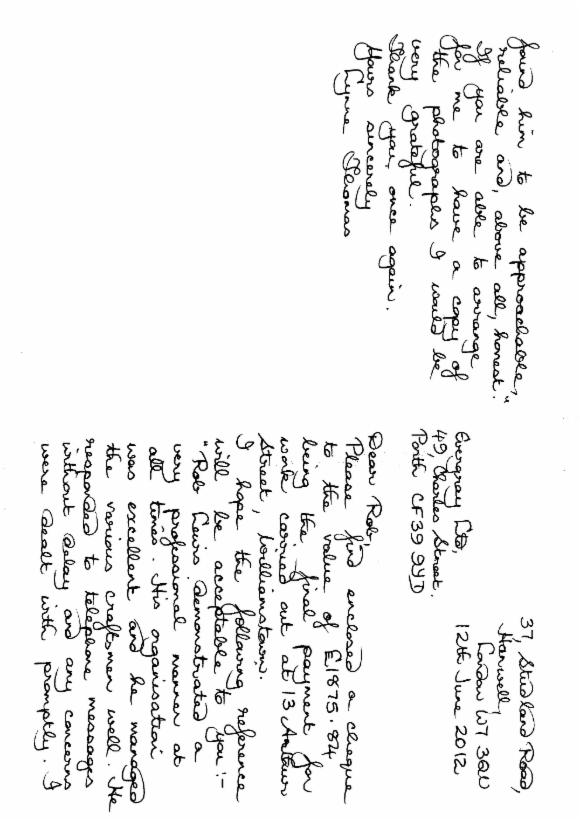 37, Studland Road,
Hanwell,
London W7 3QU
12th June 2012
Evergray Ltd,
49, Charles Street.
Porth CF39 9YD
Dear Rob,
Please find enclosed a cheque
to the value of £1875.84
being the final payment for
work carried out at 13 Arthur
Street, Williamstown.
I hope the following reference
will be acceptable to you :-
"Rob Lewis demonstrated a
very professional manner at
all times. His organisation
was excellent and he managed
the various craftsmen well. He
responded to telephone messages
without delay and any concerns
were dealt with promptly. I
found him to be approachable,
reliable and, above all, honest."
If you are able to arrange
for me to have a copy of
the photographs I would be
very grateful.
Thank you, once again.
Yours sincerely
Lynne Thomas